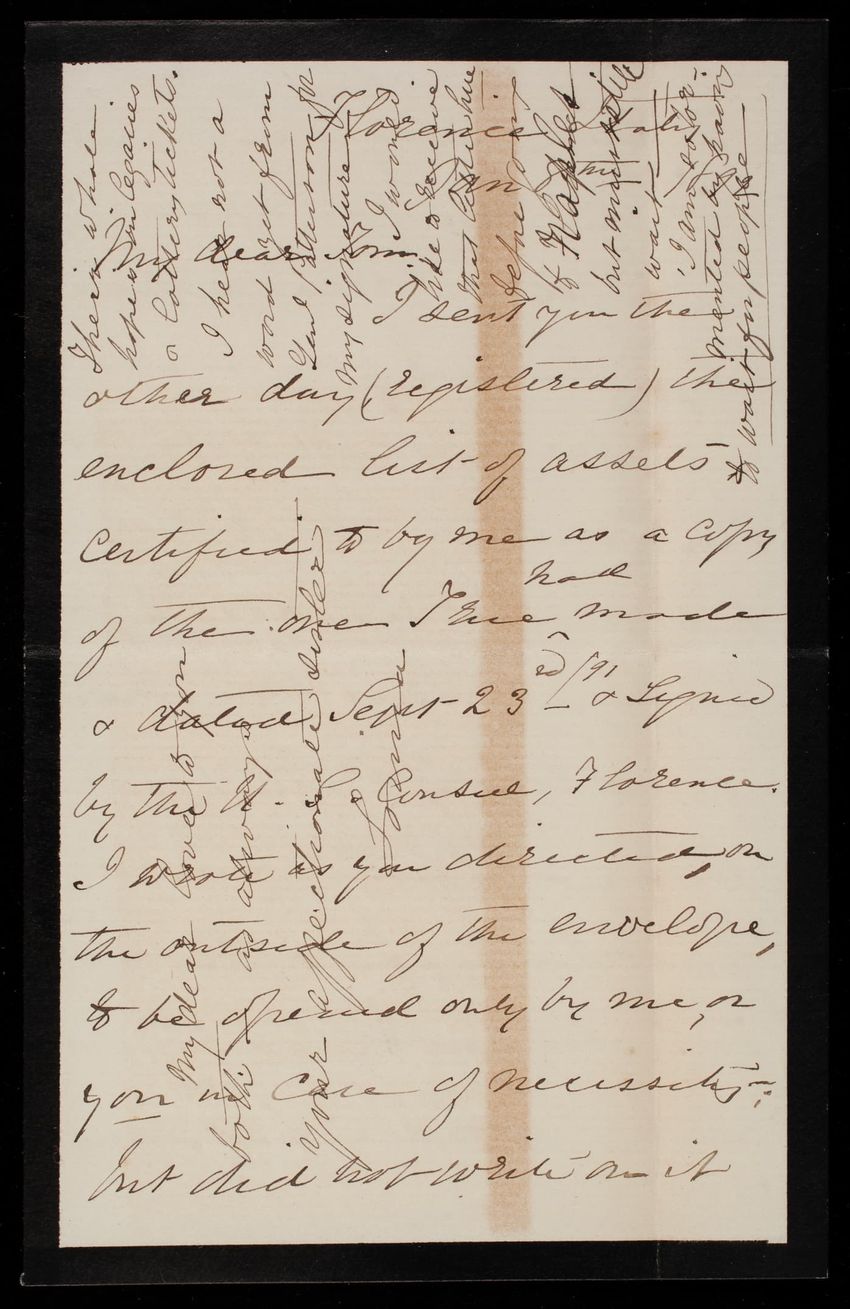 Florence Italy
Jan
My dear Tom,
I sent you the
other day (registered) the
enclosed list of assets
certified to by me as a copy
of the one I had made
& dated Sept 23rd/91 & signed
by the U. S. Consul, Florence.
I wrote as you directed, on
the outside of the envelope,
to be opened only by me, or
you in case of necessity;
but did not write on it
hope in legacies
& lottery tickets.
I hear not a
word yet from
Genl Patterson for
my signature. I would
like to receive
that little here
before
but must
wait
I am
to wait for people
My dear love to you
both as always
Your affectionate sister